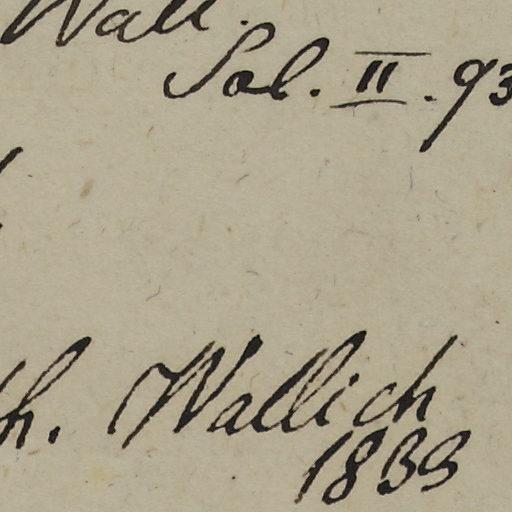 Wall.
Sol. II. 93
h. Wallich
1839